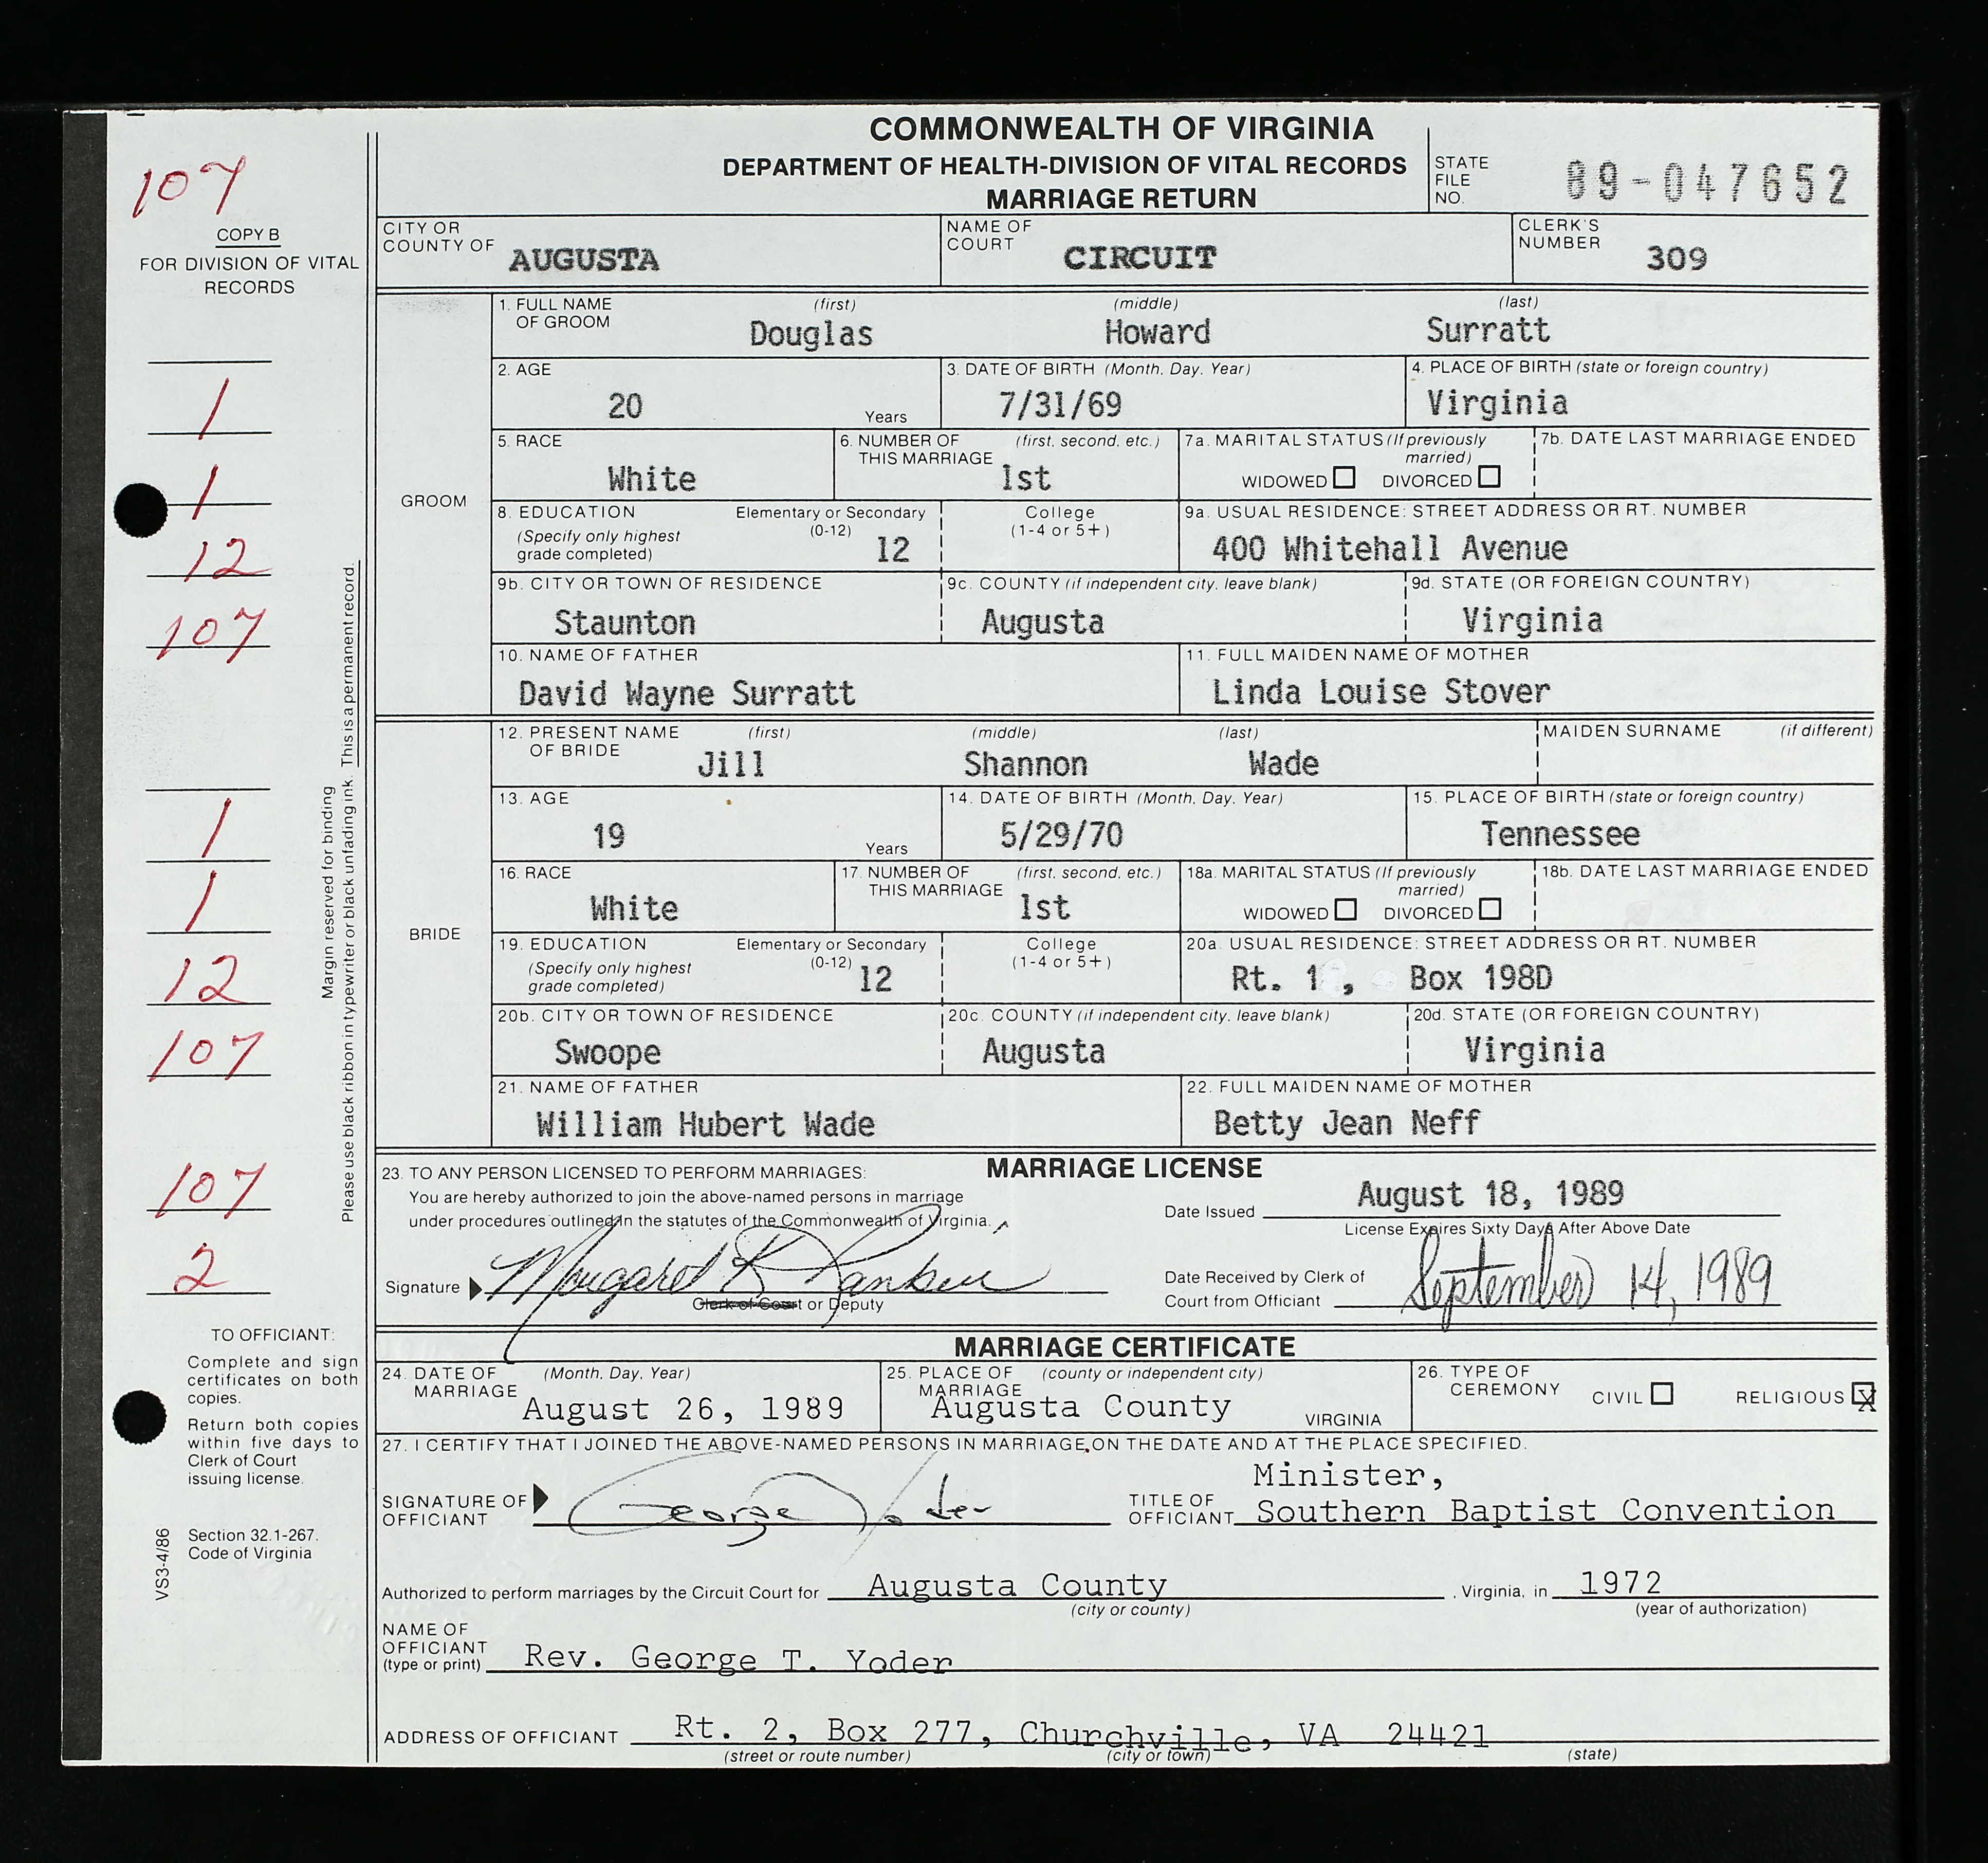 COMMONWEALTH OF VIRGINIA
DEPARTMENT OF HEALTH-DIVISION OF VITAL RECORDS
MARRIAGE RETURN
STATE FILE NO. 89-047652
107
COPY B
FOR DIVISION OF VITAL
RECORDS
CITY OR COUNTY OF AUGUSTA
NAME OF COURT CIRCUIT
CLERK'S NUMBER 309
GROOM
1. FULL NAME OF GROOM (first) Douglas (middle) Howard (last) Surratt
2. AGE 20 Years
3. DATE OF BIRTH (Month, Day, Year) 7/31/69
4. PLACE OF BIRTH (state or foreign country) Virginia
5. RACE White
6. NUMBER OF THIS MARRIAGE (first, second, etc.) 1st
7a. MARITAL STATUS (If previously married) WIDOWED DIVORCED
7b. DATE LAST MARRIAGE ENDED
8. EDUCATION (Specify only highest grade completed) Elementary or Secondary (0-12) 12 College (1-4 or 5+)
9a. USUAL RESIDENCE: STREET ADDRESS OR RT. NUMBER 400 Whitehall Avenue
9b. CITY OR TOWN OF RESIDENCE Staunton
9c. COUNTY (if independent city, leave blank) Augusta
9d. STATE (OR FOREIGN COUNTRY) Virginia
10. NAME OF FATHER David Wayne Surratt
11. FULL MAIDEN NAME OF MOTHER Linda Louise Stover
1
1
12
107
BRIDE
12. PRESENT NAME OF BRIDE (first) Jill (middle) Shannon (last) Wade
MAIDEN SURNAME (if different)
13. AGE 19 Years
14. DATE OF BIRTH (Month, Day, Year) 5/29/70
15. PLACE OF BIRTH (state or foreign country) Tennessee
16. RACE White
17. NUMBER OF THIS MARRIAGE (first, second, etc.) 1st
18a. MARITAL STATUS (If previously married) WIDOWED DIVORCED
18b. DATE LAST MARRIAGE ENDED
19. EDUCATION (Specify only highest grade completed) Elementary or Secondary (0-12) 12 College (1-4 or 5+)
20a. USUAL RESIDENCE: STREET ADDRESS OR RT. NUMBER Rt. 1, Box 198D
20b. CITY OR TOWN OF RESIDENCE Swoope
20c. COUNTY (if independent city, leave blank) Augusta
20d. STATE (OR FOREIGN COUNTRY) Virginia
21. NAME OF FATHER William Hubert Wade
22. FULL MAIDEN NAME OF MOTHER Betty Jean Neff
1
1
12
107
107
2
Margin reserved for binding
Please use black ribbon in typewriter or black unfading ink. This is a permanent record.
MARRIAGE LICENSE
23. TO ANY PERSON LICENSED TO PERFORM MARRIAGES:
You are hereby authorized to join the above-named persons in marriage
under procedures outlined in the statutes of the Commonwealth of Virginia.
Date Issued August 18, 1989
License Expires Sixty Days After Above Date
Signature Margaret K Rankin
Clerk of Court or Deputy
Date Received by Clerk of
Court from Officiant September 14, 1989
MARRIAGE CERTIFICATE
24. DATE OF MARRIAGE (Month, Day, Year) August 26, 1989
25. PLACE OF MARRIAGE (county or independent city) Augusta County VIRGINIA
26. TYPE OF CEREMONY CIVIL RELIGIOUS X
27. I CERTIFY THAT I JOINED THE ABOVE-NAMED PERSONS IN MARRIAGE ON THE DATE AND AT THE PLACE SPECIFIED.
SIGNATURE OF OFFICIANT George Yoder
TITLE OF OFFICIANT Minister,
Southern Baptist Convention
Authorized to perform marriages by the Circuit Court for Augusta County, Virginia, in 1972
(city or county) (year of authorization)
NAME OF OFFICIANT (type or print) Rev. George T. Yoder
ADDRESS OF OFFICIANT Rt. 2, Box 277, Churchville, VA 24421
(street or route number) (city or town) (state)
TO OFFICIANT:
Complete and sign
certificates on both
copies.
Return both copies
within five days to
Clerk of Court
issuing license.
Section 32.1-267.
Code of Virginia
VS3-4/86